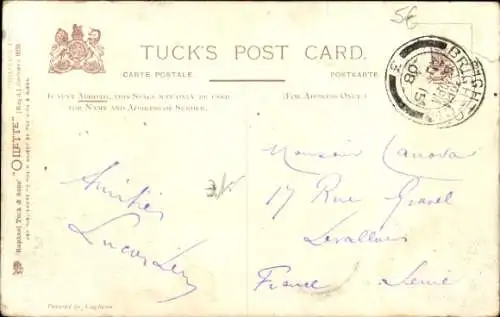 5€
TUCK'S POST CARD.
CARTE POSTALE.
POSTKARTE
IF SENT ABROAD, THIS SPACE MAY ONLY BE USED
FOR NAME AND ADDRESS OF SENDER.
(FOR ADDRESS ONLY.)
BRIGHTON
08
Raphael Tuck & Sons' "OILETTE"
Amitiés
Lucien Levy
Monsieur Canova
17 Rue Gravel
Levallois
France Seine